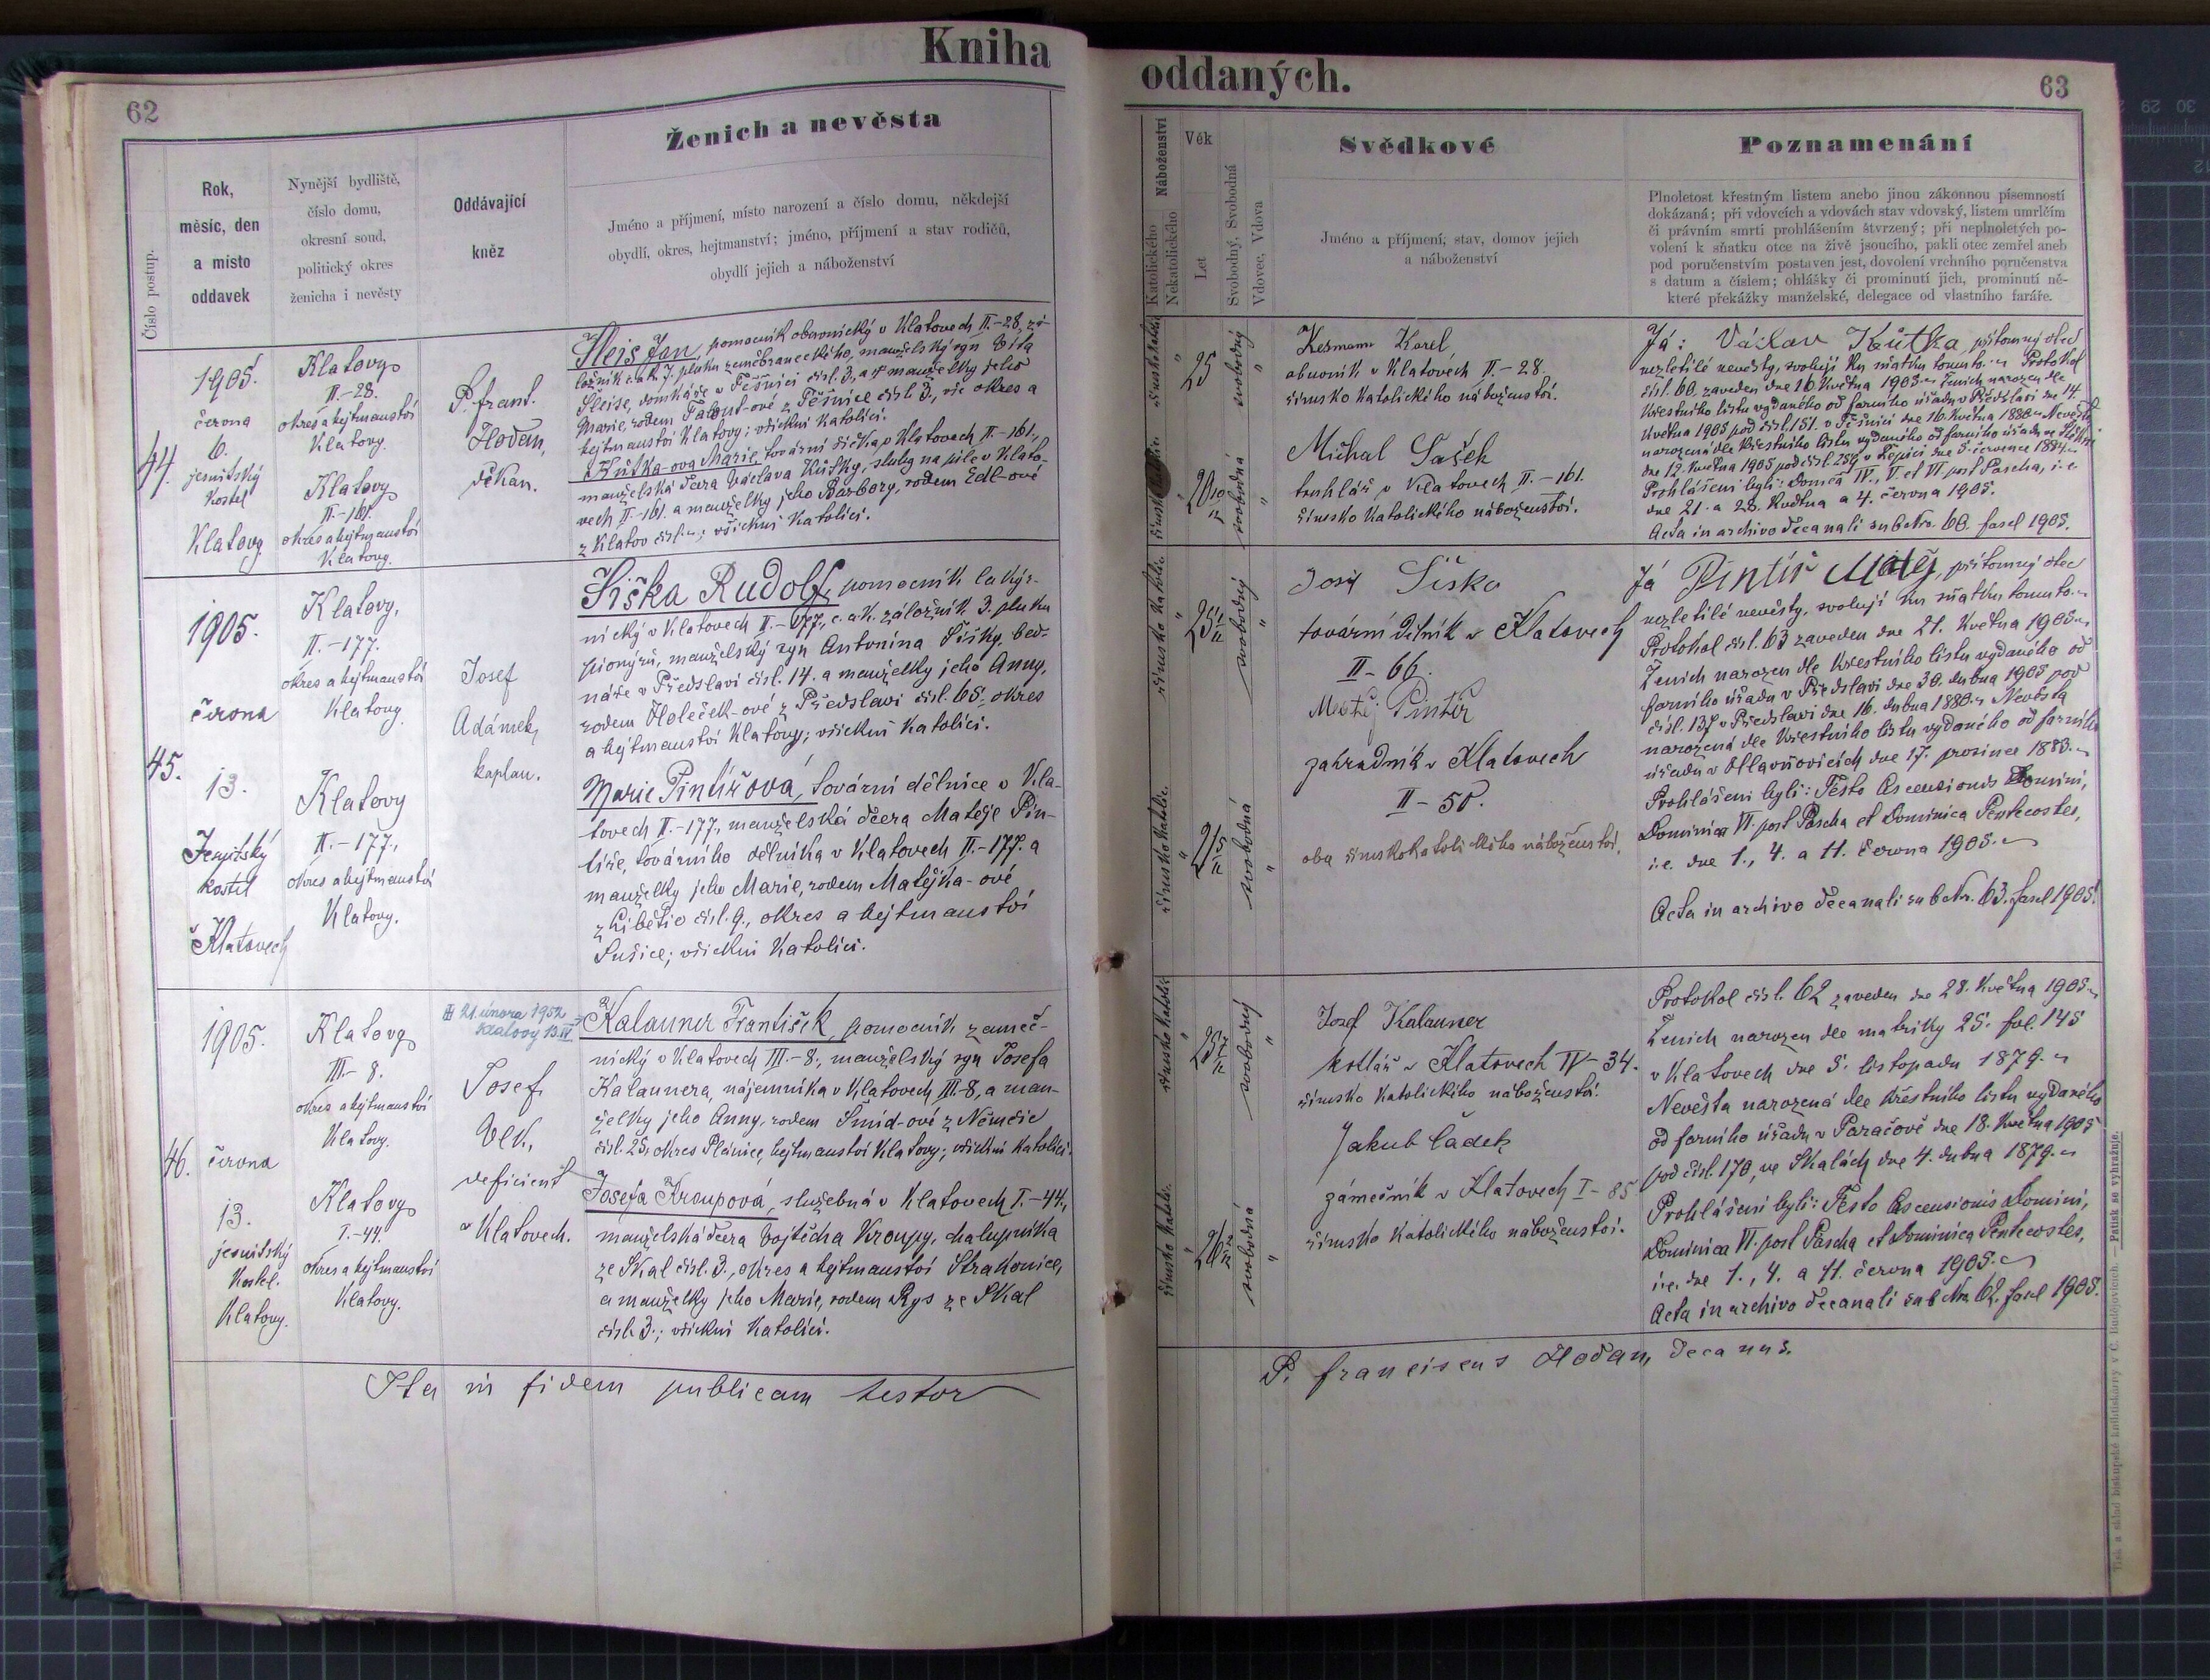 Kniha
62
Ženich a nevěsta
Číslo postup.
Rok,
měsíc, den
a místo
oddavek
Nynější bydliště,
číslo domu,
okresní soud,
politický okres
ženicha i nevěsty
Oddávající
kněz
Jméno a příjmení, místo narození a číslo domu, někdejší
obydlí, okres, hejtmanství; jméno, příjmení a stav rodičů,
obydlí jejich a náboženství
44.
1905.
června
6.
jesuitský
kostel
Klatovy
Klatovy
II.-28.
okres a hejtmanství
Klatovy.
Klatovy
II.-161.
okres a hejtmanství
Klatovy.
P. frant.
Hodan,
děkan.
Sleis Jan, pomocník obuvnický v Klatovech II.-28, zá-
ložník c. a k. 7. pluku zeměbraneckého, manželský syn Víta
Sleise, domkáře v Těšnici čísl. 3., a manželky jeho
Marie, rodem z Těšnice čísl. 3., vše okres a
hejtmanství Klatovy; všickni katolíci.
Kůtka-ova Marie, tovární v Klatovech II.-161.,
manželská dcera Václava Kůtky, sluhy na pile v Klato-
vech II.-161. a manželky jeho Barbory, rodem Edl-ové
z Klatov čísl. ; všickni katolíci.
45.
1905.
června
13.
Jesuitský
kostel
v Klatovech
Klatovy,
II.-177.
okres a hejtmanství
Klatovy.
Klatovy
II.-177.,
okres a hejtmanství
Klatovy.
Josef
Adámek,
kaplan.
Šiška Rudolf, pomocník lakýr-
nický v Klatovech II.-177., c. a k. záložník 3. pluku
pionýrů, manželský syn Antonína Šišky, bed-
náře v Předslavi čísl. 14. a manželky jeho Anny,
rodem Holeček-ové z Předslavi čísl. 65., okres
a hejtmanství Klatovy; všickni katolíci.
Marie Pintířová, tovární dělnice v Kla-
tovech II.-177., manželská dcera Matěje Pin-
tíře, továrního dělníka v Klatovech II.-177. a
manželky jeho Marie, rodem Matějka-ové
z Libětic čísl. 9., okres a hejtmanství
Sušice; všickni katolíci.
46.
1905.
června
13.
jesuitský
kostel.
Klatovy.
Klatovy
III.-8.
okres a hejtmanství
Klatovy.
Klatovy
I.-44.
okres a hejtmanství
Klatovy.
21. února 1952
Klatovy
Josef
Vlk,
deficient
v Klatovech.
Kalauner František, pomocník zámeč-
nický v Klatovech III.-8., manželský syn Josefa
Kalaunera, nájemníka v Klatovech III.-8, a man-
želky jeho Anny, rodem Šmíd-ové z Němčic
čísl. 25., okres Plánice, hejtmanství Klatovy; všickni katolíci.
Josefa Kroupová, služebná v Klatovech I.-44.,
manželská dcera Vojtěcha Kroupy, chalupníka
ze Skal čísl. 3., okres a hejtmanství Strakonice,
a manželky jeho Marie, rodem Rys ze Skal
čísl. 3.; všickni katolíci.
Ita in fidem publicam testor
oddaných.
63
Náboženství
Katolického
Nekatolického
Věk
Let
Svobodný, Svobodná
Vdovec, Vdova
Svědkové
Jméno a příjmení, stav, domov jejich
a náboženství
Poznamenání
Plnoletost křestným listem anebo jinou zákonnou písemností
dokázaná; při vdovcích a vdovách stav vdovský, listem umrlčím
či právním smrti prohlášením štvrzený; při neplnoletých po-
volení k sňatku otce na živě jsoucího, pakli otec zemřel aneb
pod poručenstvím postaven jest, dovolení vrchního poručenstva
s datum a číslem; ohlášky či prominutí jich, prominutí ně-
které překážky manželské, delegace od vlastního faráře.
25
svobodný
svobodná
Karel
obuvník v Klatovech II.-28.
římsko katolického náboženství.
Michal Sašek
truhlář v Klatovech II.-161.
římsko katolického náboženství.
Já: Václav Kůtka, přítomný otec
nezletilé nevěsty, svoluji ku sňatku tomuto. Protokol
čísl. 60. zaveden dne 16. května 1905. Ženich narozen dle
křestního listu vydaného od farního úřadu v Předslavi dne 14.
května 1905 pod čísl. 151. v Těšnici dne 16. května 1880. Nevěsta
narozená dle křestního listu vydaného od farního úřadu
dne 12. května 1905 pod čísl. dne 5. července
Prohlášeni byli: Domca IV., V. et VI. post Pascha, i. e.
dne 21. a 28. května a 4. června 1905.
Acta in archivo decanali sub Nr. 60. fasc 1905.
římsko katolic.
svobodný
římsko katolic.
svobodná
Josef Šiška
tovární dělník v Klatovech
II-66.
Matěj Pintíř
zahradník v Klatovech
II-50.
oba římskokatolického náboženství.
Já Pintíř Matěj, přítomný otec
nezletilé nevěsty, svoluji ku sňatku tomuto.
Protokol čísl. 63 zaveden dne 21. května 1905.
Ženich narozen dle křestního listu vydaného od
farního úřadu v Předslavi dne 30. dubna 1905 pod
čísl. 137 v Předslavi dne 16. dubna 1880. Nevěsta
narozená dle křestního listu vydaného od farního
úřadu v Hlavňovicích dne 17. prosince 1883.
Prohlášeni byli: Festo Ascensionis Domini,
Dominica VI. post Pascha et Dominica Pentecostes,
i. e. dne 1., 4. a 11. června 1905.
Acta in archivo decanali sub Nr. 63. fasc 1905.
římsko katolic.
svobodný
římsko katolic.
svobodná
Josef Kalauner
kotlář v Klatovech IV-34.
římsko katolického náboženství.
Jakub Čadek
zámečník v Klatovech I-85
římsko katolického náboženství.
Protokol čísl. 62 zaveden dne 28. května 1905.
Ženich narozen dle matriky 25. fol. 145
v Klatovech dne 5. listopadu 1879.
Nevěsta narozená dle křestního listu vydaného
od farního úřadu v Paračově dne 18. května 1905
pod čísl. 170, ve Skalách dne 4. dubna 1879.
Prohlášeni byli: Festo Ascensionis Domini,
Dominica VI. post Pascha et Dominica Pentecostes,
i. e. dne 1., 4. a 11. června 1905.
Acta in archivo decanali sub Nr. 62. fasc 1905.
P. franciscus Hodan, decanus.
Tisk a sklad biskupské knihtiskárny v Č. Budějovicích. — Patisk se vyhražuje.